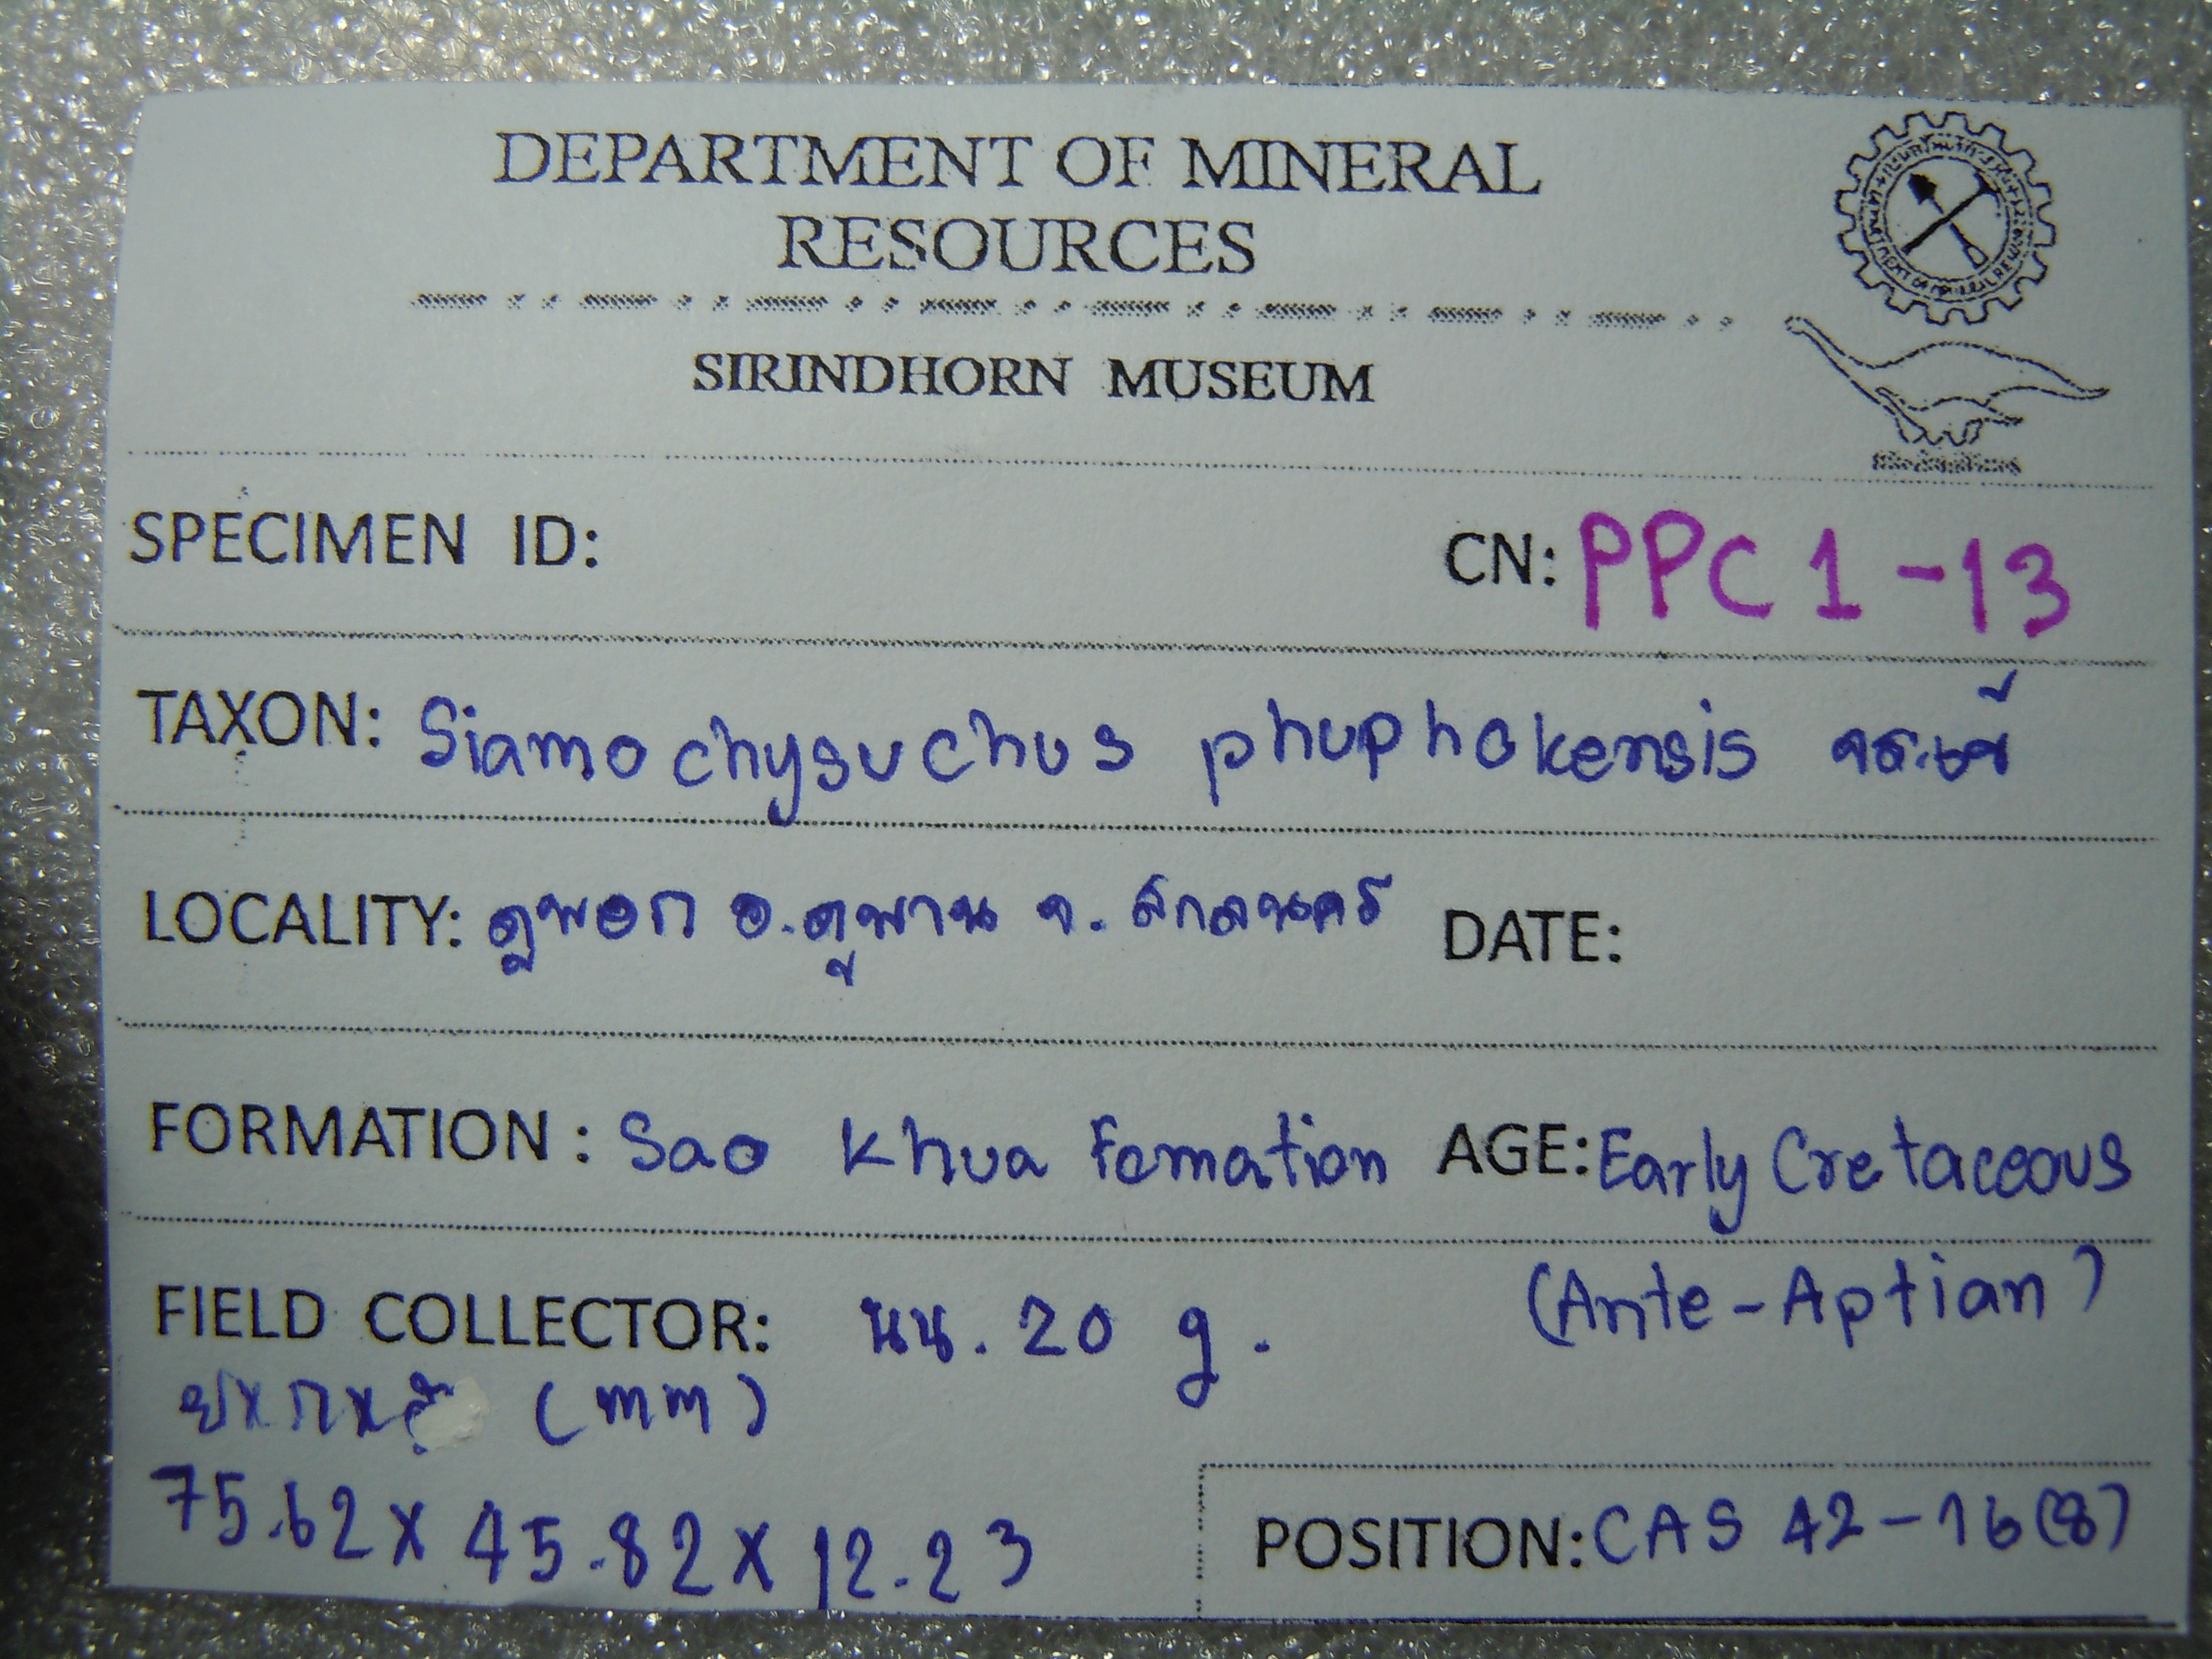 DEPARTMENT OF MINERAL
RESOURCES
SIRINDHORN MUSEUM
SPECIMEN ID: CN: PPC 1-13
TAXON: Siamochysuchus phuphokensis จระเข้
LOCALITY: ภูพอก อ.ภูพาน จ.สกลนคร DATE:
FORMATION : Sao Khua Fomation AGE: Early Cretaceous
(Ante-Aptian)
FIELD COLLECTOR: นน. 20 g.
ย x ก x ส (mm)
75.62 x 45.82 x 12.23
POSITION: CAS 42-16(8)